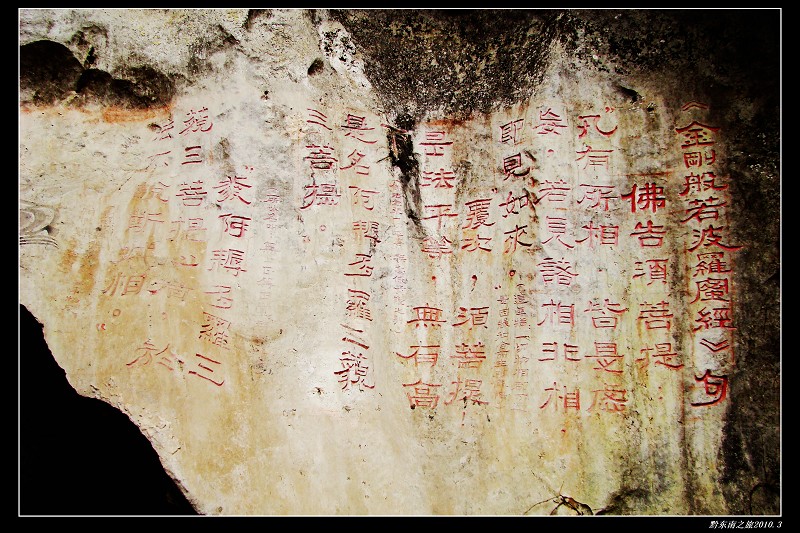 《金剛般若波羅蜜經》句
佛告須菩提
"凡有所相，皆是虛
妄。若見諸相非相
即見如來。"
"覆次，須菩提
是法平等，無有高
是名阿耨多羅三藐
三菩提。
"發阿耨多羅三
藐三菩提心者，於
法不說斷滅相。
黔东南之旅2010.3